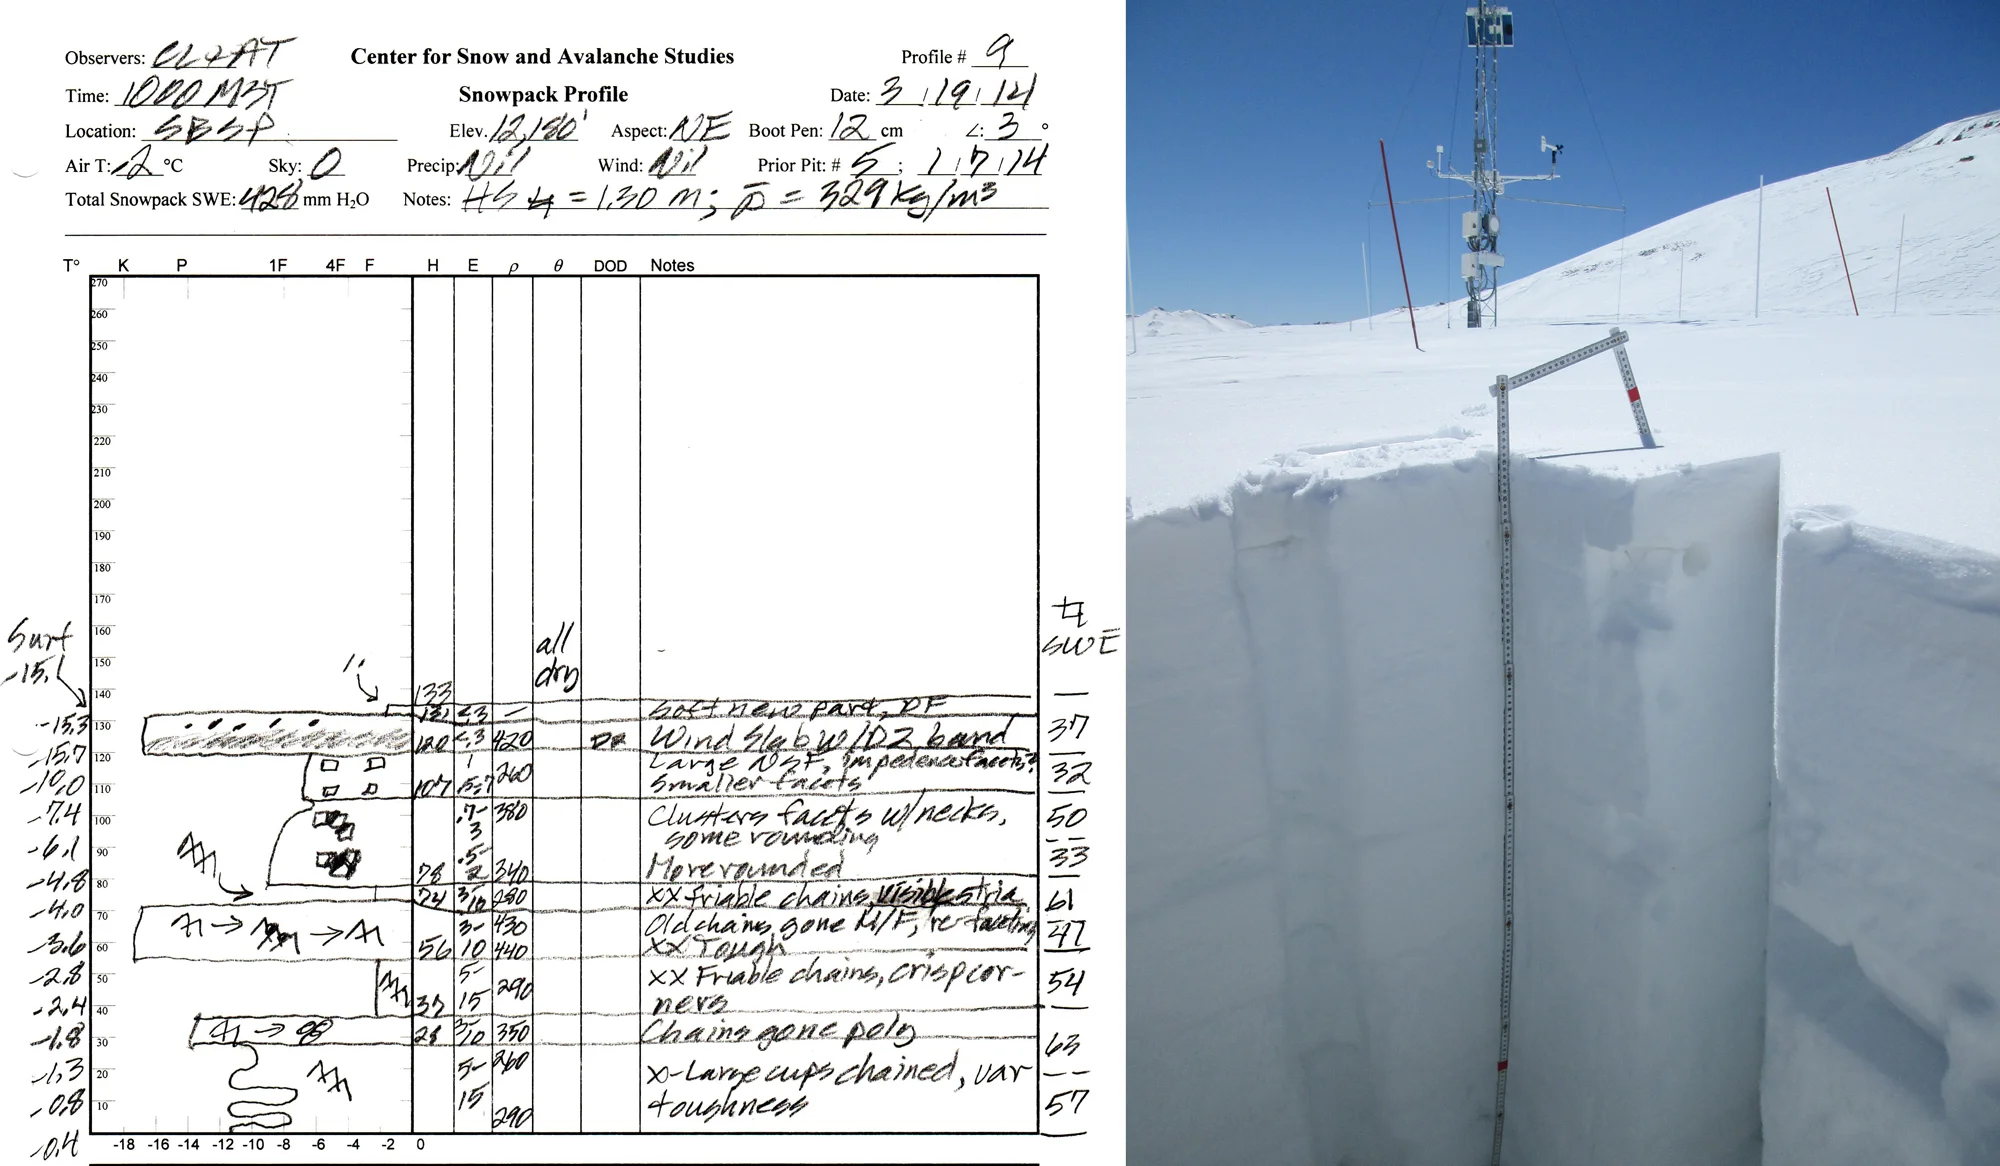 Observers: CL & AT Center for Snow and Avalanche Studies Profile # 9
Time: 1000 MST Snowpack Profile Date: 3 / 19 / 14
Location: SBSP Elev. 12,180' Aspect: NE Boot Pen: 12 cm ∠: 3 °
Air T: -2 °C Sky: 0 Precip: Nil Wind: Nil Prior Pit: # 5 ; 1 / 7 / 14
Total Snowpack SWE: 428 mm H₂O Notes: HS = 1.30 m; ρ̄ = 329 kg/m³
T° K P 1F 4F F H E ρ θ DOD Notes
270
260
250
240
230
220
210
200
190
180
170
160 all
Surf 150 dry SWE
-15.1 140 133
-15.3 130 131 <.3 – Soft new part, DF 37
120 <.3 420 D2 Wind Slab w/D2 band
-15.7 120 1 260 Large NSF, impedence facets? 32
-10.0 110 107 .5-.7 Smaller facets
-7.4 100 .7- 380 Clusters facets w/necks, 50
3 some rounding
-6.1 90 .5- 33
-4.8 80 78 2 340 More rounded
-4.0 70 74 3/10 280 XX friable chains, visible stria 61
3- 430 Old chains, gone M/F, re-faceting 47
-3.6 60 56 10 440 XX Tough
-2.8 50 5- 290 XX Friable chains, crisp cor- 54
-2.4 40 37 15 ners
-1.8 30 28 3-10 350 Chains gone poly 63
-1.3 20 5- 260 X-Large cups chained, var
-0.8 10 15 290 toughness 57
-0.4 -18 -16 -14 -12 -10 -8 -6 -4 -2 0